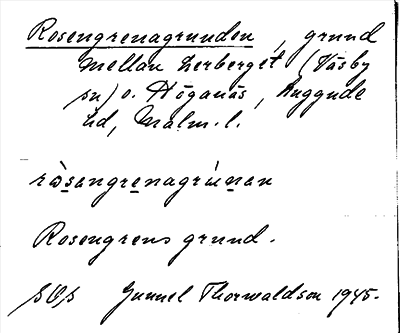 Rosengrenagrunden, grund
mellan Lerberget (Väsby
sn) o. Höganäs, Luggude
hd, Malm. l.
ròsangrenagrúnan
Rosengrens grund.
Gunnel Thorwaldson 1945.